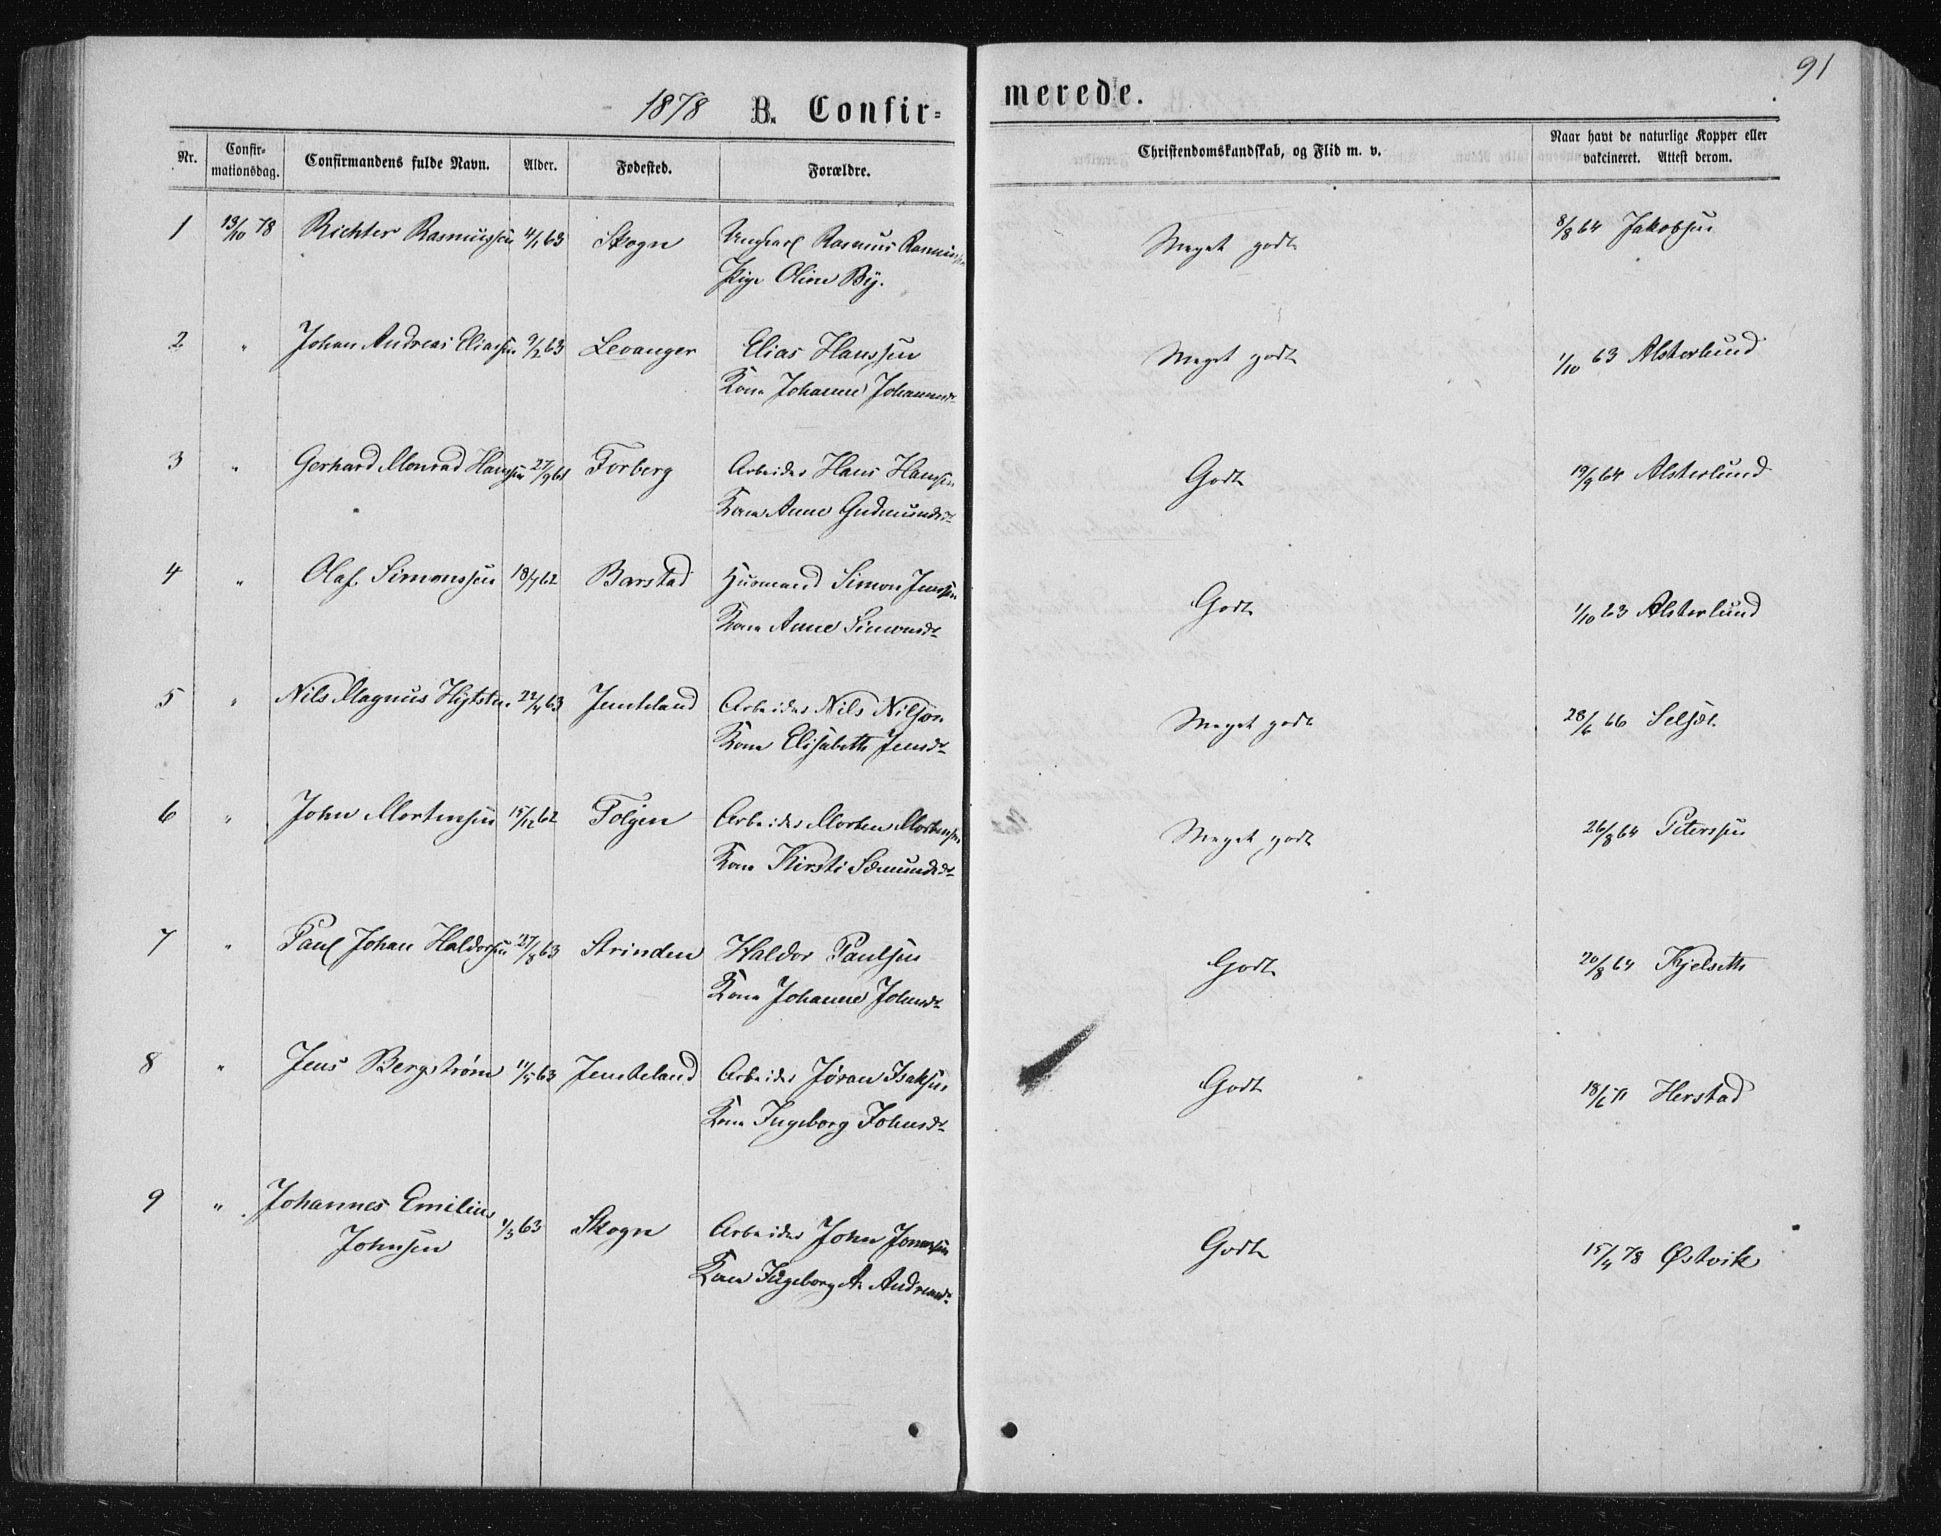 91
1878 B. Confir-
merede.
Nr.
Confir-
mationsdag.
Confirmandens fulde Navn.
Alder.
Fødested.
Forældre.
Christendomskundskab, og Flid m. v.
Naar havt de naturlige Kopper eller
vakcineret. Attest derom.
1 13/10 78 Richter Rasmussen 4/1 63 Skogn Ungkarl Rasmus Rasmussen Meget godt 8/8 64 Jakobsen
Pige Oline By.
2 " Johan Andreas Eliassen 9/2 63 Levanger Elias Hanssen Meget godt 1/10 63 Alsterlund
Kone Johanne Johannesdt
3 " Gerhard Monrad Hanssen 27/9 61 Forberg Arbeider Hans Hansen Godt 19/9 64 Alsterlund
Kone Anne Gudmundsdt
4 " Olaf Simonssen 18/7 62 Barstad Husmand Simon Jenssen Godt 1/10 63 Alsterlund
Kone Anne Simonsdt
5 " Nils Magnus Hytsten 22/4 63 Jemteland Arbeider Nils Nilsson Meget godt 28/6 66 Selsøt
Kone Elisabeth Jensdt
6 " John Mortensen 15/12 62 Tolgen Arbeider Morten Mortensen Meget godt 26/8 64 Peterssen
Kone Kirsti Sæmundsdt
7 " Paul Johan Haldorsen 27/8 63 Strinden Haldor Paulsen Godt 20/8 64 Kjelseth
Kone Johanne Johnsdt
8 " Jens Bergstrøm 11/5 63 Jemteland Arbeider Jøran Isaksen Godt 18/6 71 Herstad
Kone Ingeborg Johnsdt
9 " Johannes Emilius
Johnsen 1/3 63 Skogn Arbeider John Jonassen Godt 15/4 78 Østvik
Kone Ingeborg A. Andreasdt